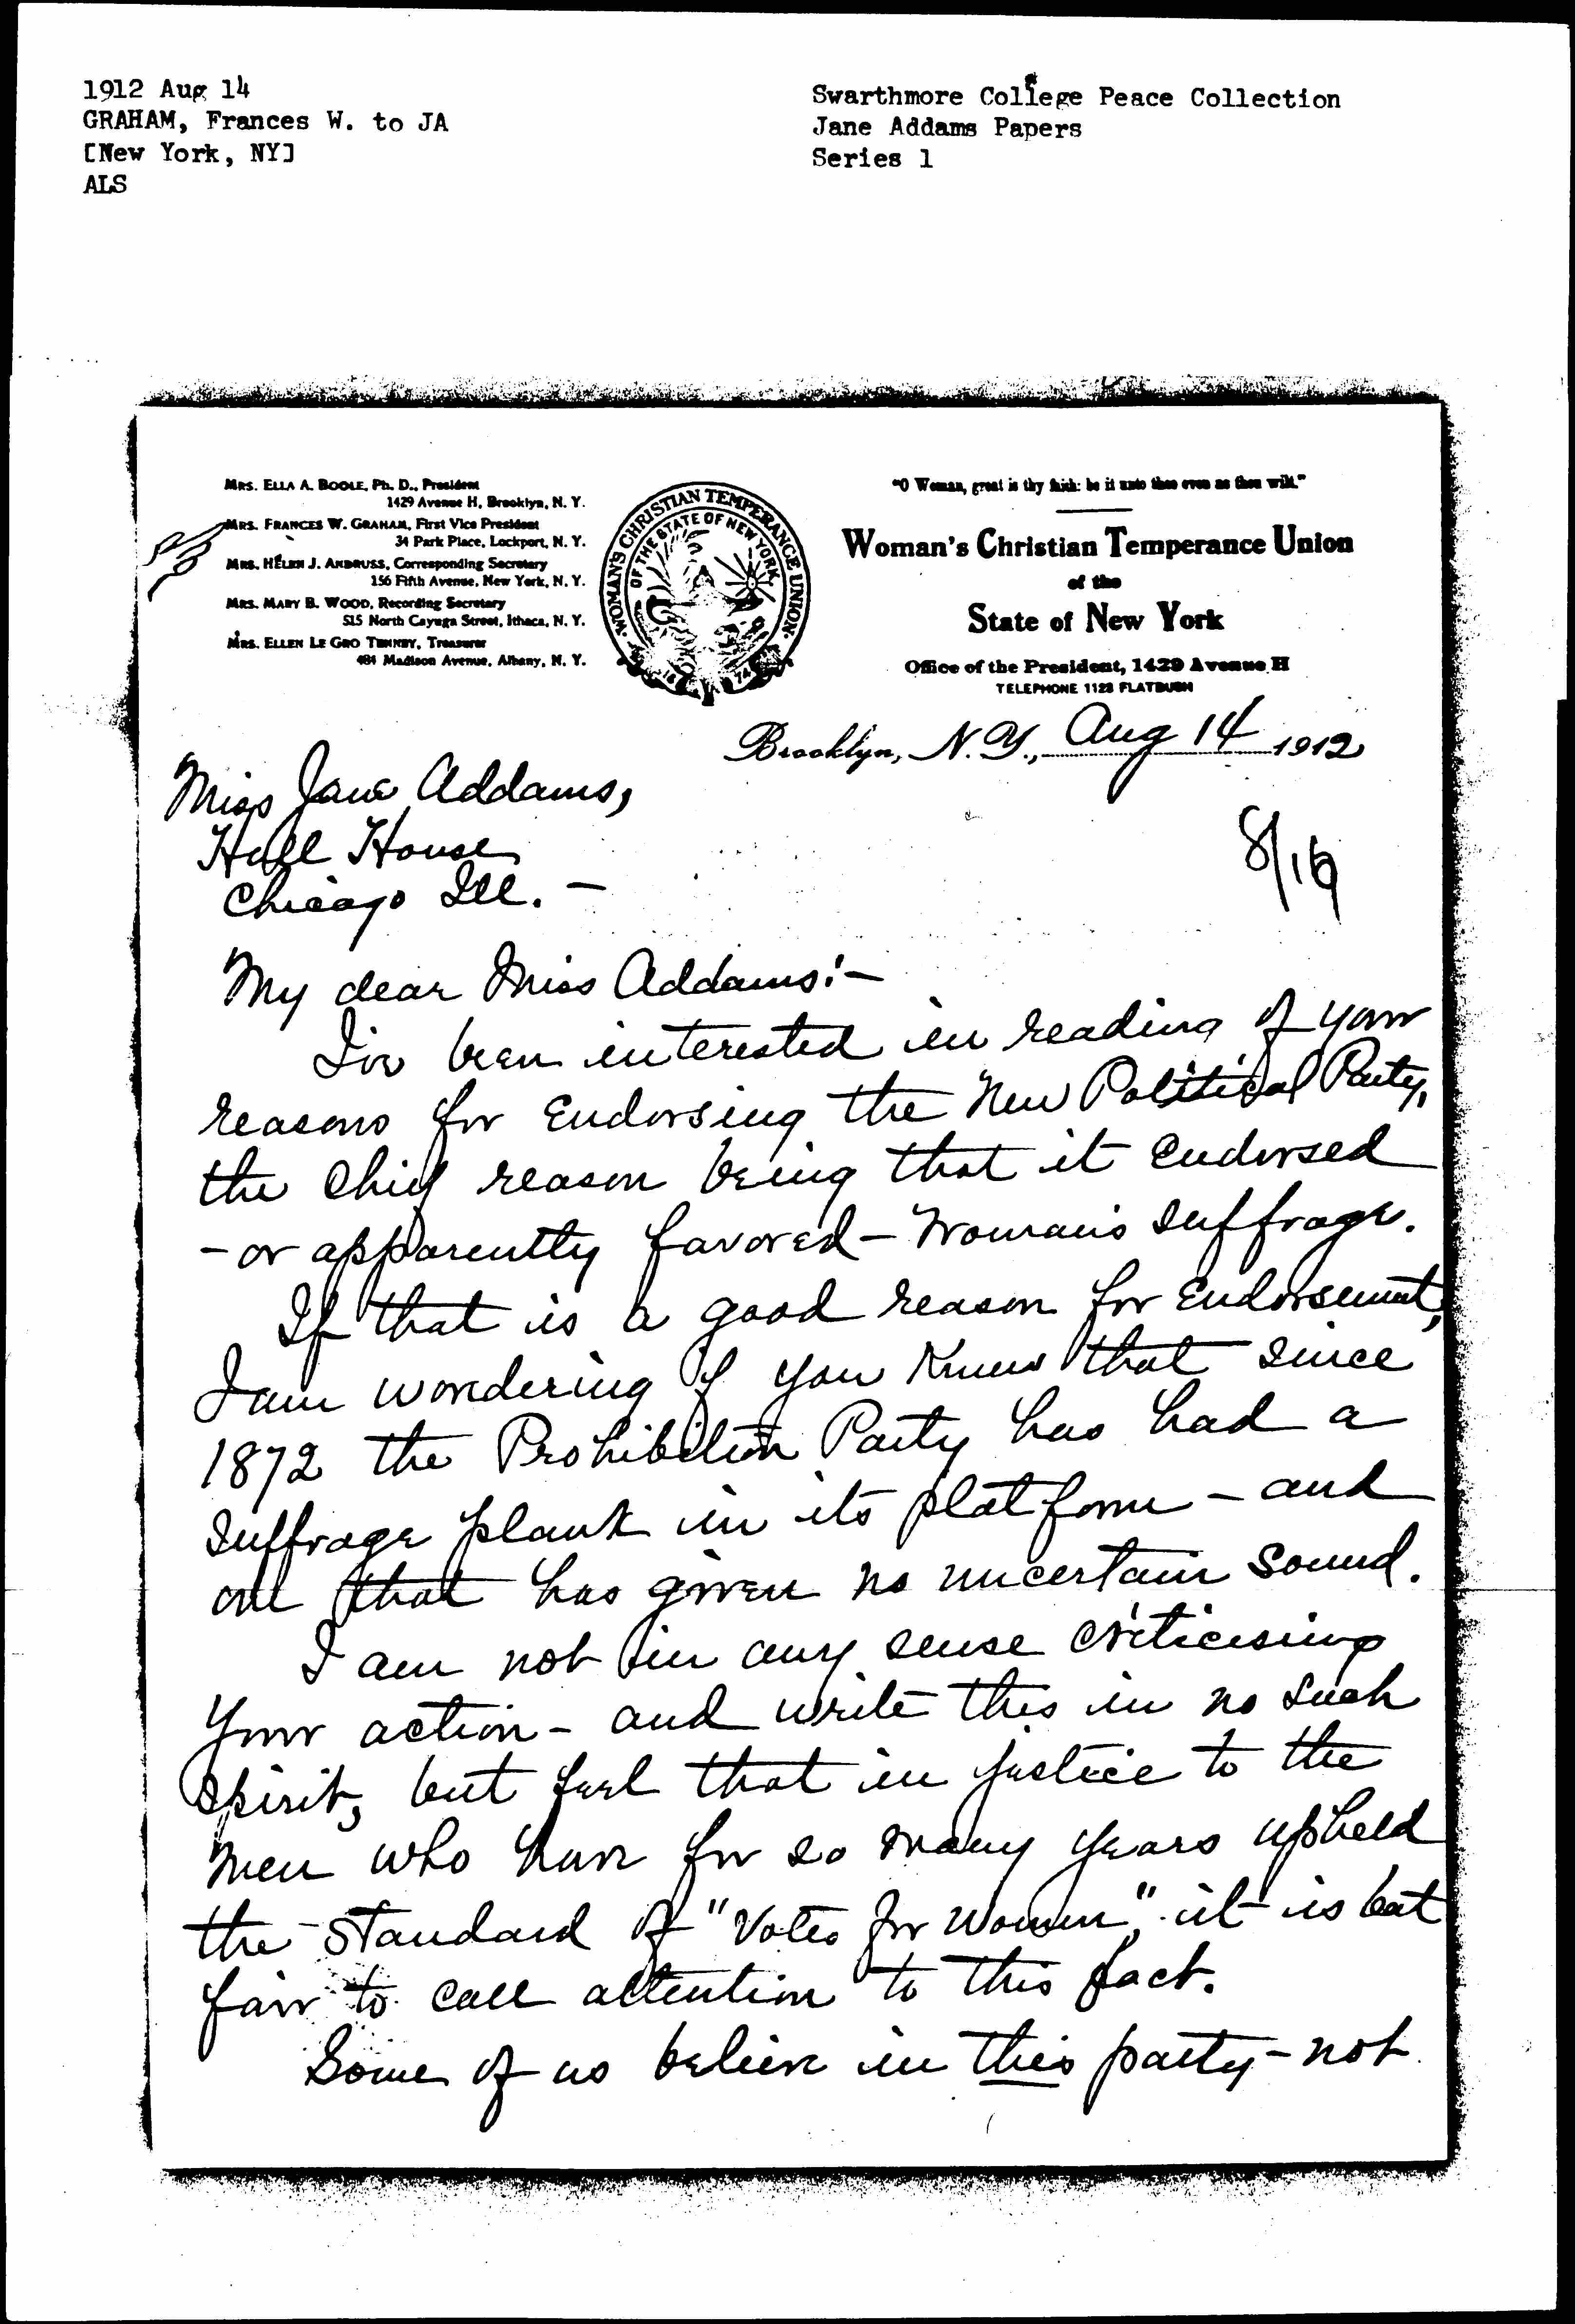 1912 Aug 14
GRAHAM, Frances W. to JA
[New York, NY]
ALS
Swarthmore College Peace Collection
Jane Addams Papers
Series 1
MRS. ELLA A. BOOLE, Ph. D., President
1429 Avenue H, Brooklyn, N. Y.
MRS. FRANCES W. GRAHAM, First Vice President
34 Park Place, Lockport, N. Y.
MRS. HELEN J. ANDRUSS, Corresponding Secretary
156 Fifth Avenue, New York, N. Y.
MRS. MARY B. WOOD, Recording Secretary
515 North Cayuga Street, Ithaca, N. Y.
MRS. ELLEN LE GRO TENNEY, Treasurer
484 Madison Avenue, Albany, N. Y.
WOMAN'S CHRISTIAN TEMPERANCE UNION
OF THE STATE OF NEW YORK
18 74
"O Woman, great is thy faith: be it unto thee even as thou wilt."
Woman's Christian Temperance Union
of the
State of New York
Office of the President, 1429 Avenue H
TELEPHONE 1128 FLATBUSH
Brooklyn, N. Y., Aug 14 1912
Miss Jane Addams,
Hull House
Chicago Ill. –
8/16
My dear Miss Addams:–
I've been interested in reading of your
reasons for endorsing the New Political Party,
the chief reason being that it endorsed
– or apparently favored – Woman's suffrage.
If that is a good reason for endorsement,
I am wondering if you knew that since
1872 the Prohibition Party has had a
suffrage plank in its platform – and
one that has given no uncertain sound.
I am not in any sense criticising
your action – and write this in no such
spirit, but feel that in justice to the
men who have for so many years upheld
the standard of "Votes for Women", it is but
fair to call attention to this fact.
Some of us believe in this party – not